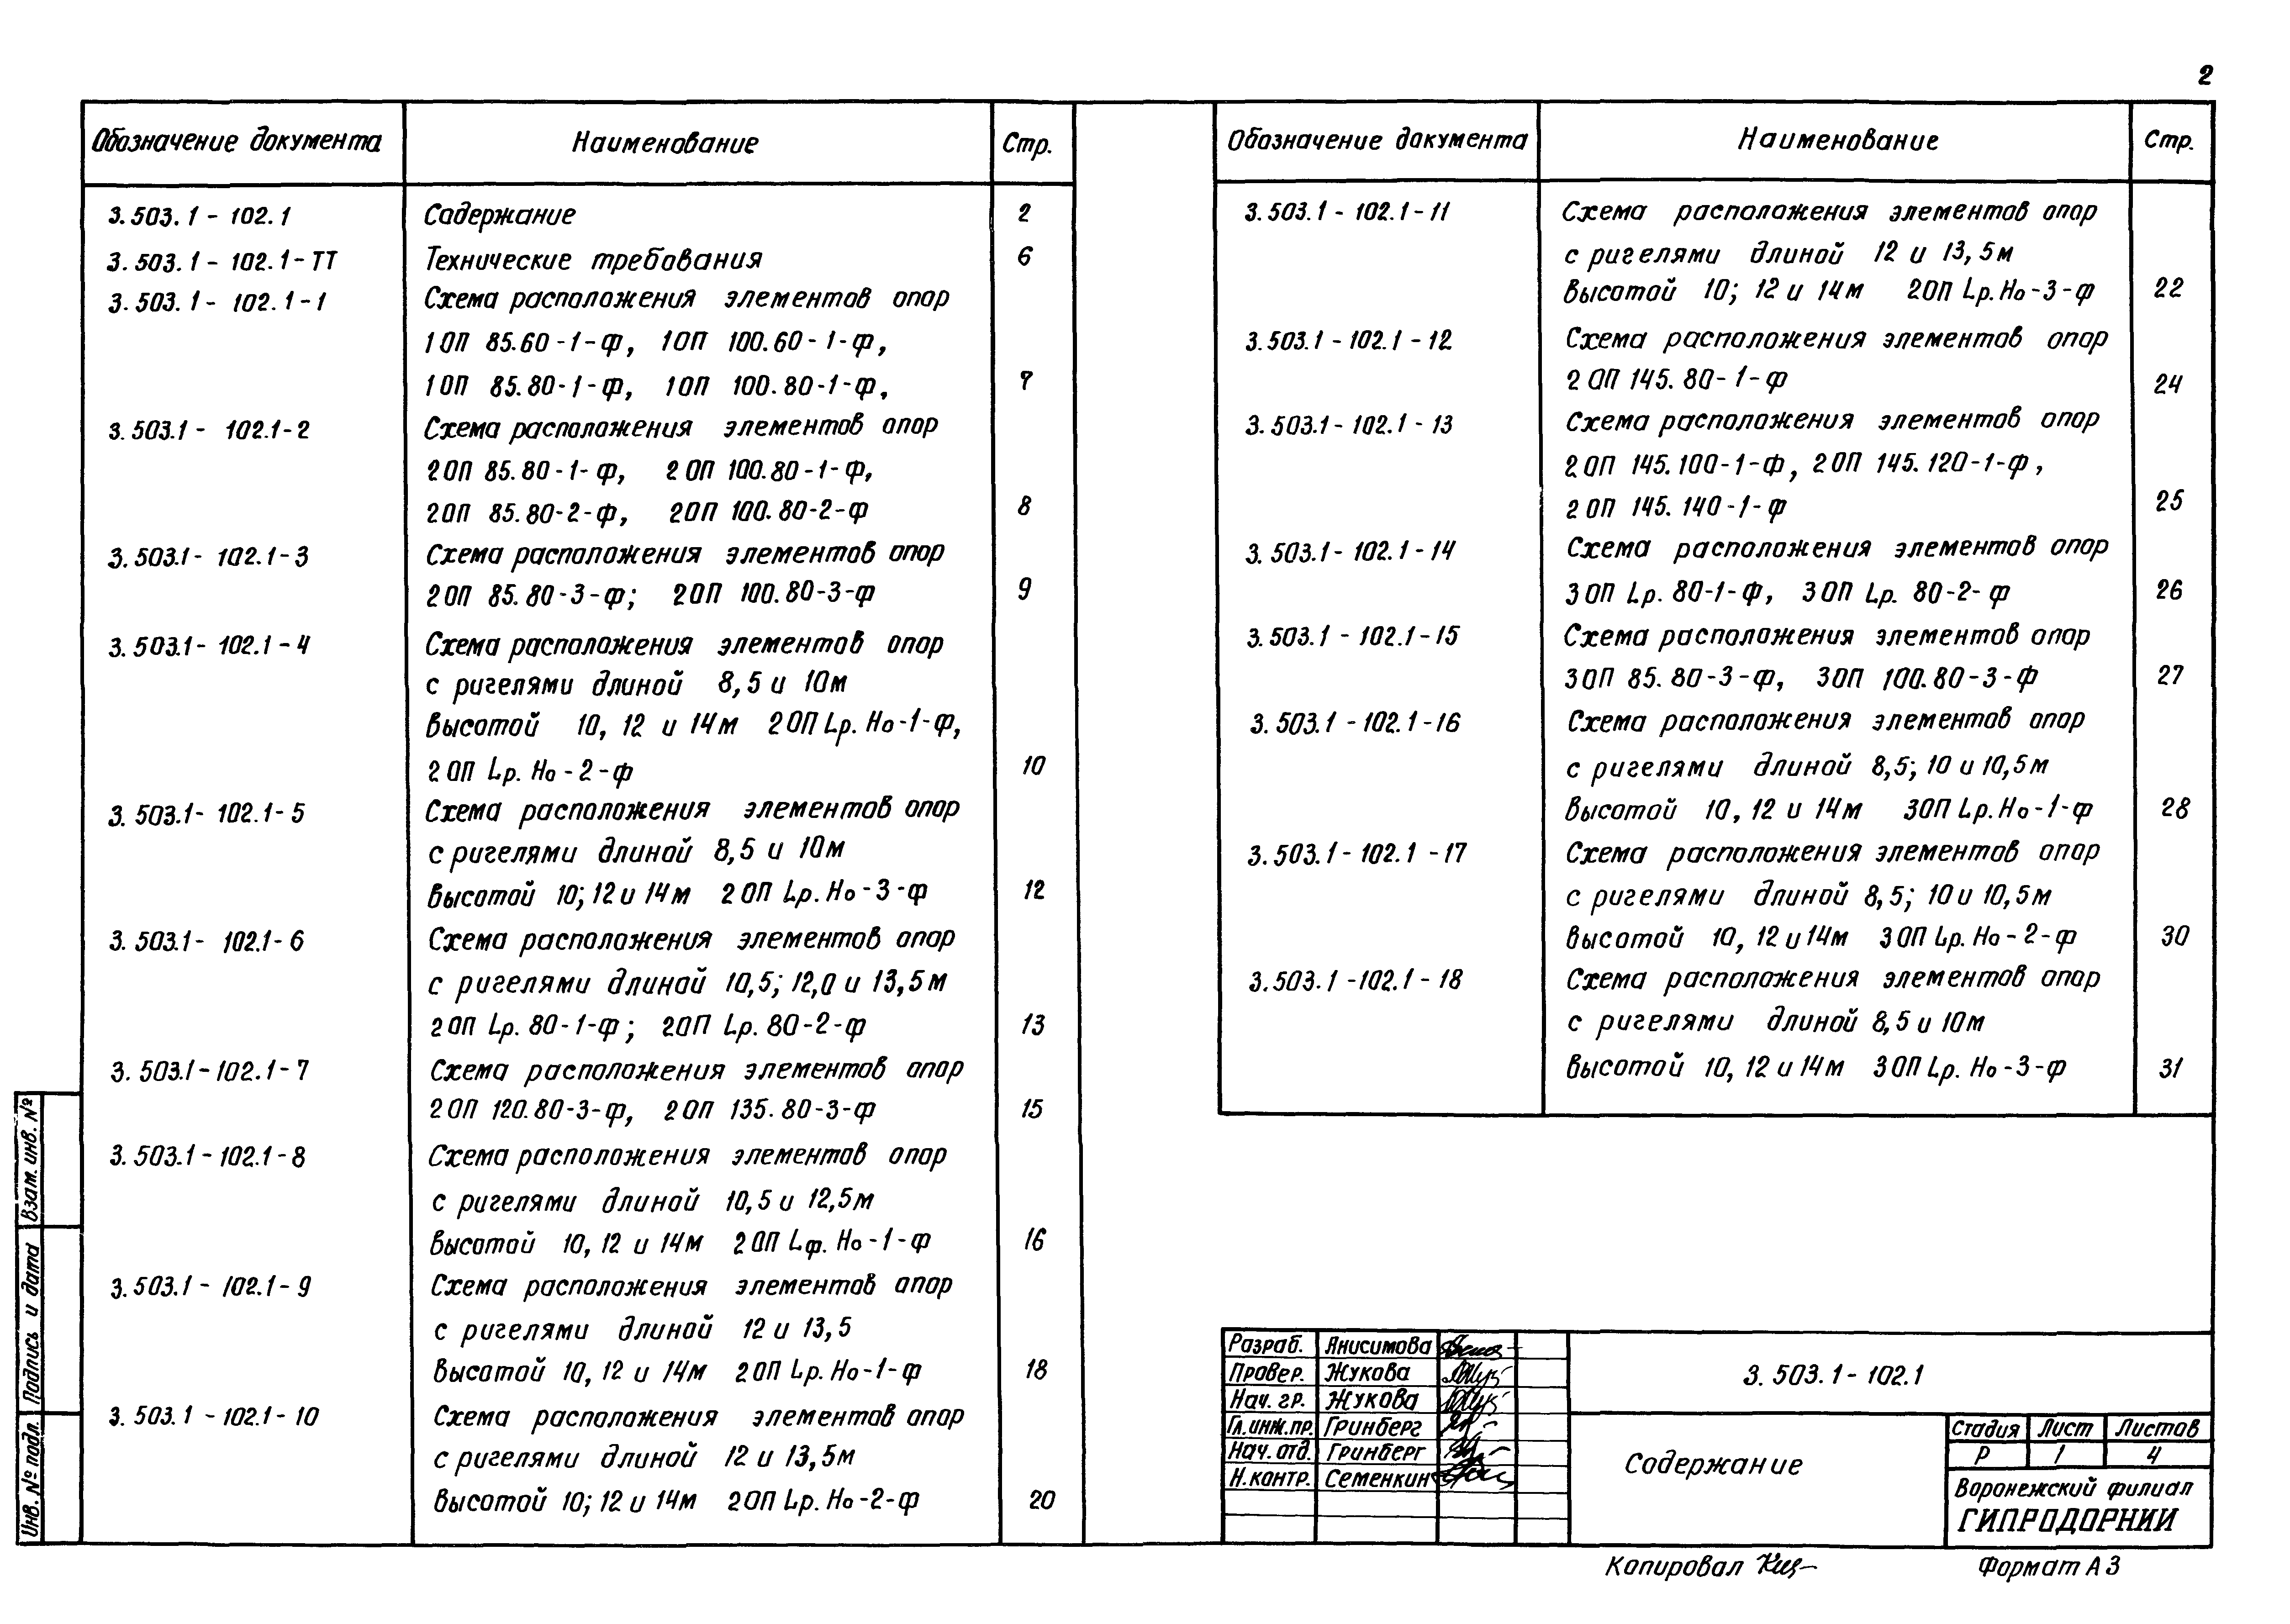 2
Обозначение документа Наименование Стр.
3.503.1-102.1 Содержание 2
3.503.1-102.1-ТТ Технические требования 6
3.503.1-102.1-1 Схема расположения элементов опор
1ОП 85.60-1-ф, 1ОП 100.60-1-ф,
1ОП 85.80-1-ф, 1ОП 100.80-1-ф, 7
3.503.1-102.1-2 Схема расположения элементов опор
2ОП 85.80-1-ф, 2ОП 100.80-1-ф,
2ОП 85.80-2-ф, 2ОП 100.80-2-ф 8
3.503.1-102.1-3 Схема расположения элементов опор
2ОП 85.80-3-ф; 2ОП 100.80-3-ф 9
3.503.1-102.1-4 Схема расположения элементов опор
с ригелями длиной 8,5 и 10м
высотой 10, 12 и 14м 2ОП Lр.Но-1-ф,
2ОП Lр.Но-2-ф 10
3.503.1-102.1-5 Схема расположения элементов опор
с ригелями длиной 8,5 и 10м
высотой 10; 12 и 14м 2ОП Lр.Но-3-ф 12
3.503.1-102.1-6 Схема расположения элементов опор
с ригелями длиной 10,5; 12,0 и 13,5м
2ОП Lр.80-1-ф; 2ОП Lр.80-2-ф 13
3.503.1-102.1-7 Схема расположения элементов опор
2ОП 120.80-3-ф, 2ОП 135.80-3-ф 15
3.503.1-102.1-8 Схема расположения элементов опор
с ригелями длиной 10,5 и 12,5м
высотой 10, 12 и 14м 2ОП Lф.Но-1-ф 16
3.503.1-102.1-9 Схема расположения элементов опор
с ригелями длиной 12 и 13,5
высотой 10, 12 и 14м 2ОП Lр.Но-1-ф 18
3.503.1-102.1-10 Схема расположения элементов опор
с ригелями длиной 12 и 13,5м
высотой 10; 12 и 14м 2ОП Lр.Но-2-ф 20
Обозначение документа Наименование Стр.
3.503.1-102.1-11 Схема расположения элементов опор
с ригелями длиной 12 и 13,5м
высотой 10; 12 и 14м 2ОП Lр.Но-3-ф 22
3.503.1-102.1-12 Схема расположения элементов опор
2ОП 145.80-1-ф 24
3.503.1-102.1-13 Схема расположения элементов опор
2ОП 145.100-1-ф, 2ОП 145.120-1-ф,
2ОП 145.140-1-ф 25
3.503.1-102.1-14 Схема расположения элементов опор
3ОП Lр.80-1-ф, 3ОП Lр.80-2-ф 26
3.503.1-102.1-15 Схема расположения элементов опор
3ОП 85.80-3-ф, 3ОП 100.80-3-ф 27
3.503.1-102.1-16 Схема расположения элементов опор
с ригелями длиной 8,5; 10 и 10,5м
высотой 10, 12 и 14м 3ОП Lр.Но-1-ф 28
3.503.1-102.1-17 Схема расположения элементов опор
с ригелями длиной 8,5; 10 и 10,5м
высотой 10, 12 и 14м 3ОП Lр.Но-2-ф 30
3.503.1-102.1-18 Схема расположения элементов опор
с ригелями длиной 8,5 и 10м
высотой 10, 12 и 14м 3ОП Lр.Но-3-ф 31
Инв. № подл. Подпись и дата Взам. инв. №
Разраб. Анисимова
Провер. Жукова
Нач. гр. Жукова
Гл. инж. пр. Гринберг
Нач. отд. Гринберг
Н. контр. Семенкин
3.503.1-102.1
Содержание
Стадия Лист Листов
Р 1 4
Воронежский филиал
ГИПРОДОРНИИ
Копировал
Формат А3